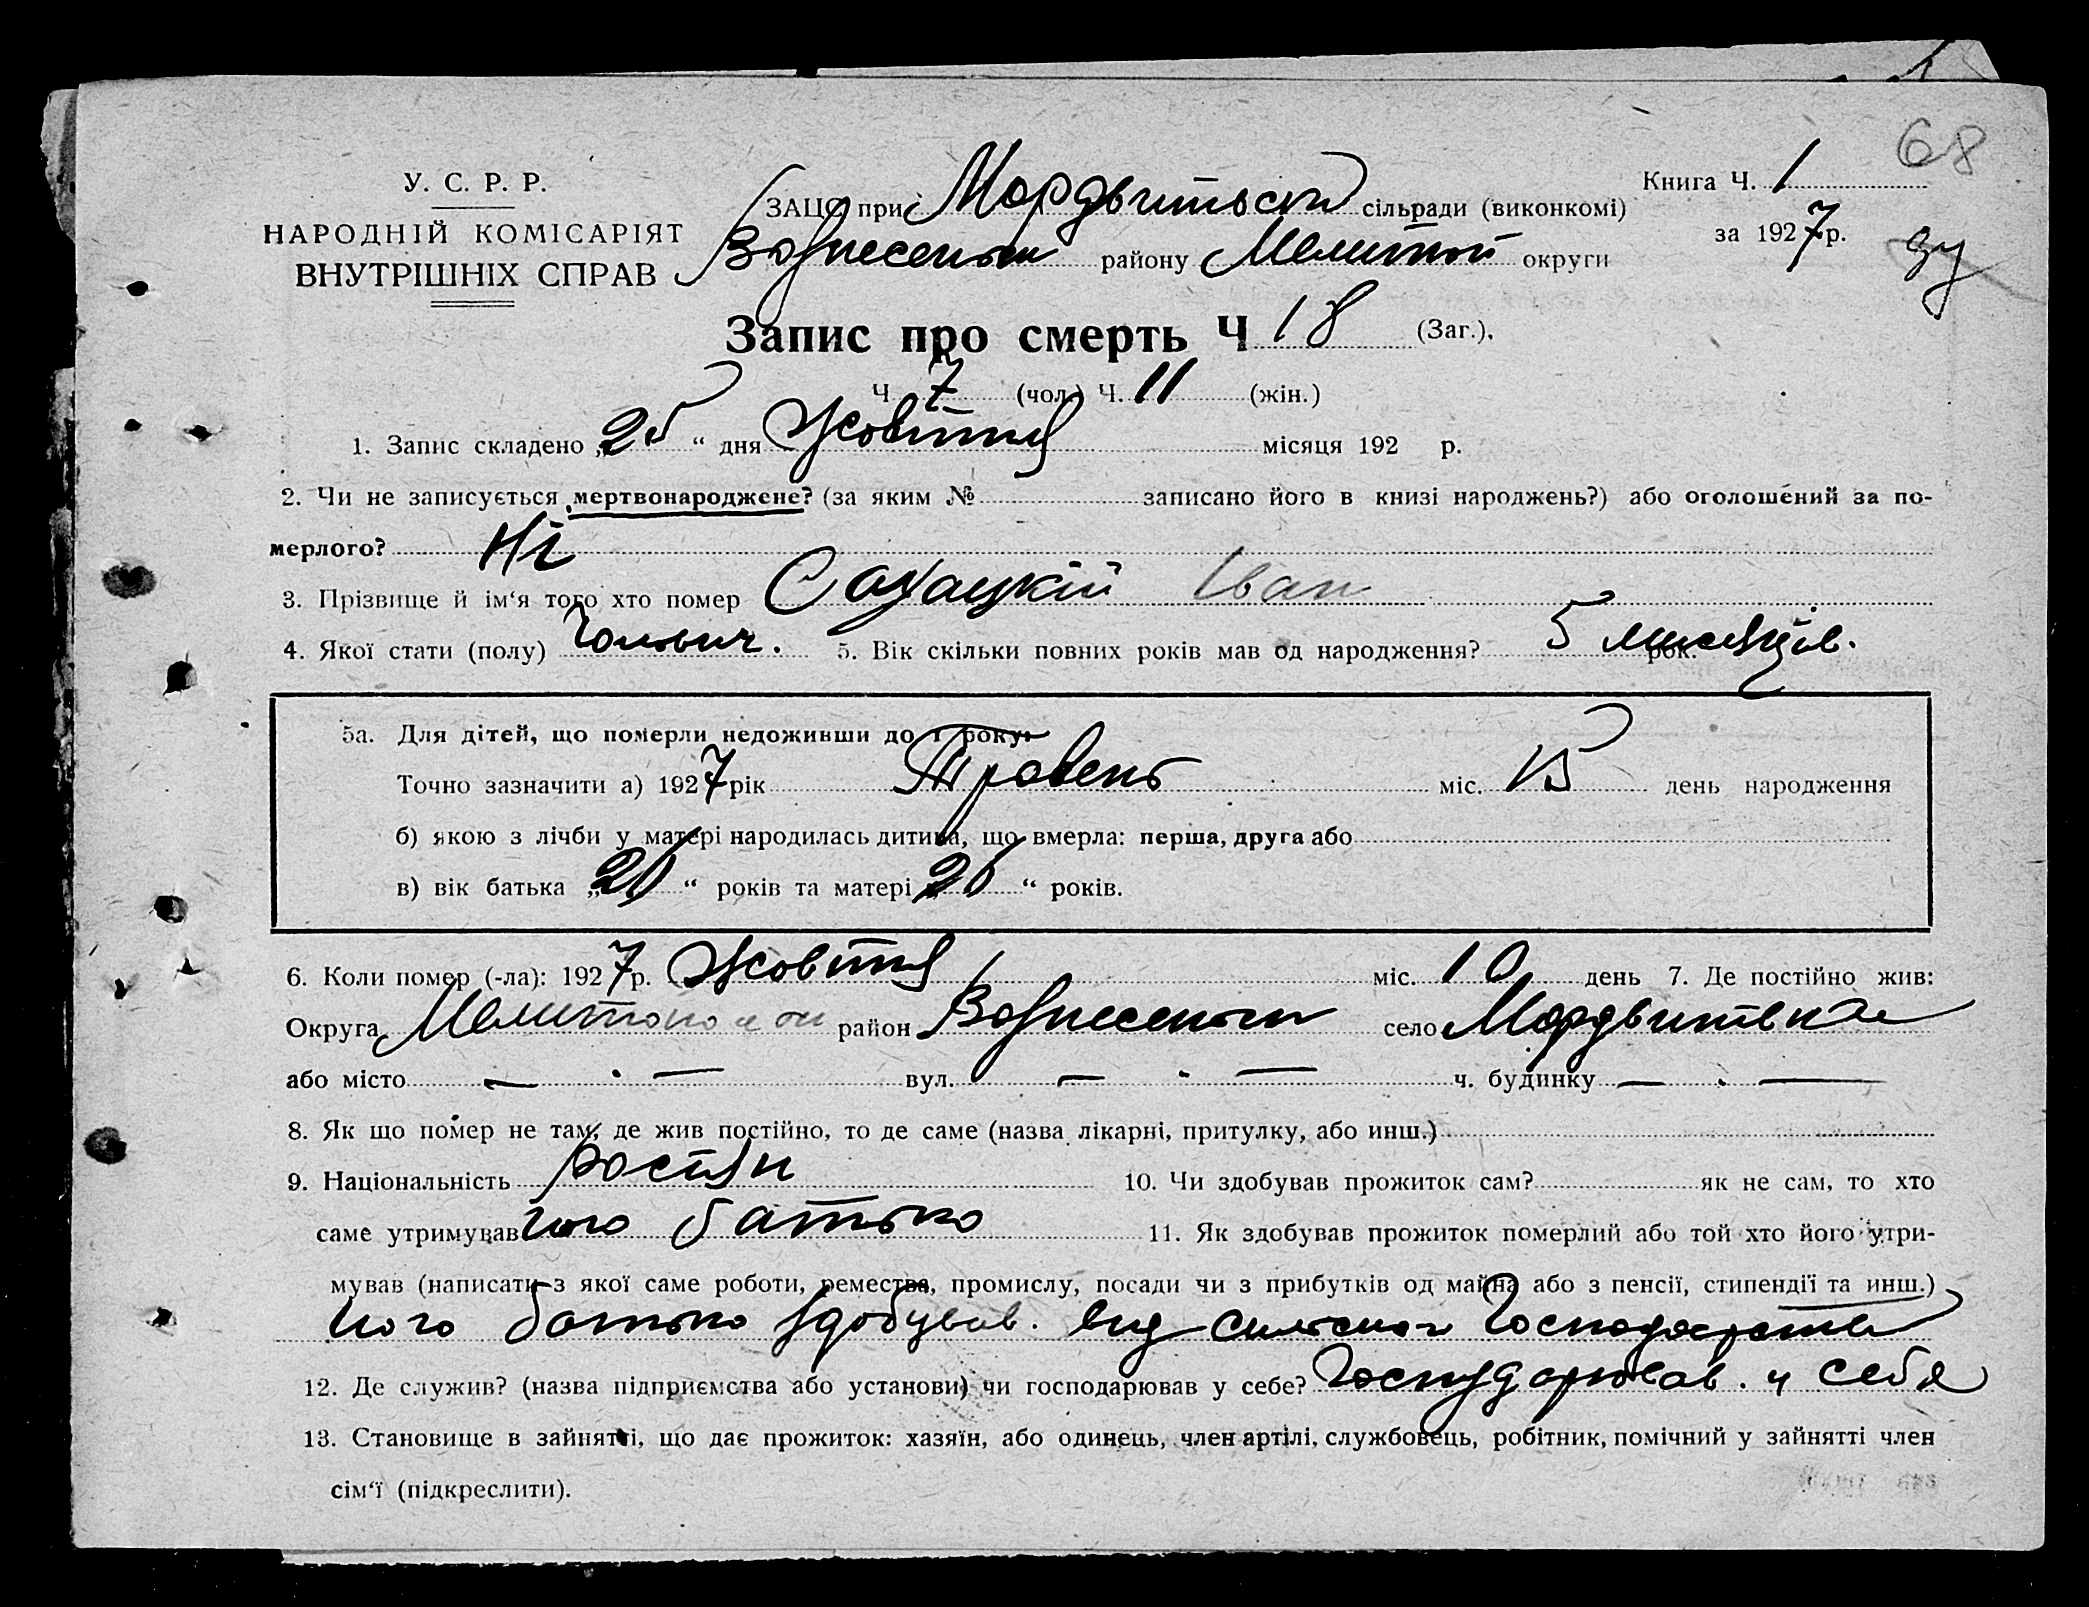 68
У. С. Р. Р.
НАРОДНІЙ КОМІСАРІЯТ
ВНУТРІШНІХ СПРАВ
ЗАЦС при сільради (виконкомі)
Книга Ч. 1
району округи
за 1927 р.
Запис про смерть Ч 18 (Заг.),
Ч 7 (чол.) Ч. 11 (жін.)
1. Запис складено „25“ дня Жовтня місяця 192 р.
2. Чи не записується мертвонароджене? (за яким № записано його в книзі народжень?) або оголошений за по-
мерлого? Ні
3. Прізвище й ім‘я того хто помер Сахацкій Іван
4. Якої стати (полу) 5. Вік скільки повних років мав од народження? 5 рок.
5а. Для дітей, що померли недоживши до 1 року:
Точно зазначити а) 1927 рік Травень міс. 15 день народження
б) якою з лічби у матері народилась дитина, що вмерла: перша, друга або
в) вік батька „ “ років та матері „ “ років.
6. Коли помер (-ла): 1927 р. Жовтня міс. 10 день 7. Де постійно жив:
Округа район село
або місто — · — вул. — · — ч. будинку — · —
8. Як що помер не там, де жив постійно, то де саме (назва лікарні, притулку, або инш.)
9. Національність 10. Чи здобував прожиток сам? як не сам, то хто
саме утримував його батько 11. Як здобував прожиток померлий або той хто його утри-
мував (написати з якої саме роботи, ремества, промислу, посади чи з прибутків од майна або з пенсії, стипендії та инш.)
його батько здобував. від
12. Де служив? (назва підприємства або установи) чи господарював у себе? у себя
13. Становище в зайнятті, що дає прожиток: хазяїн, або одинець, член артілі, службовець, робітник, помічний у зайнятті член
сім‘ї (підкреслити).